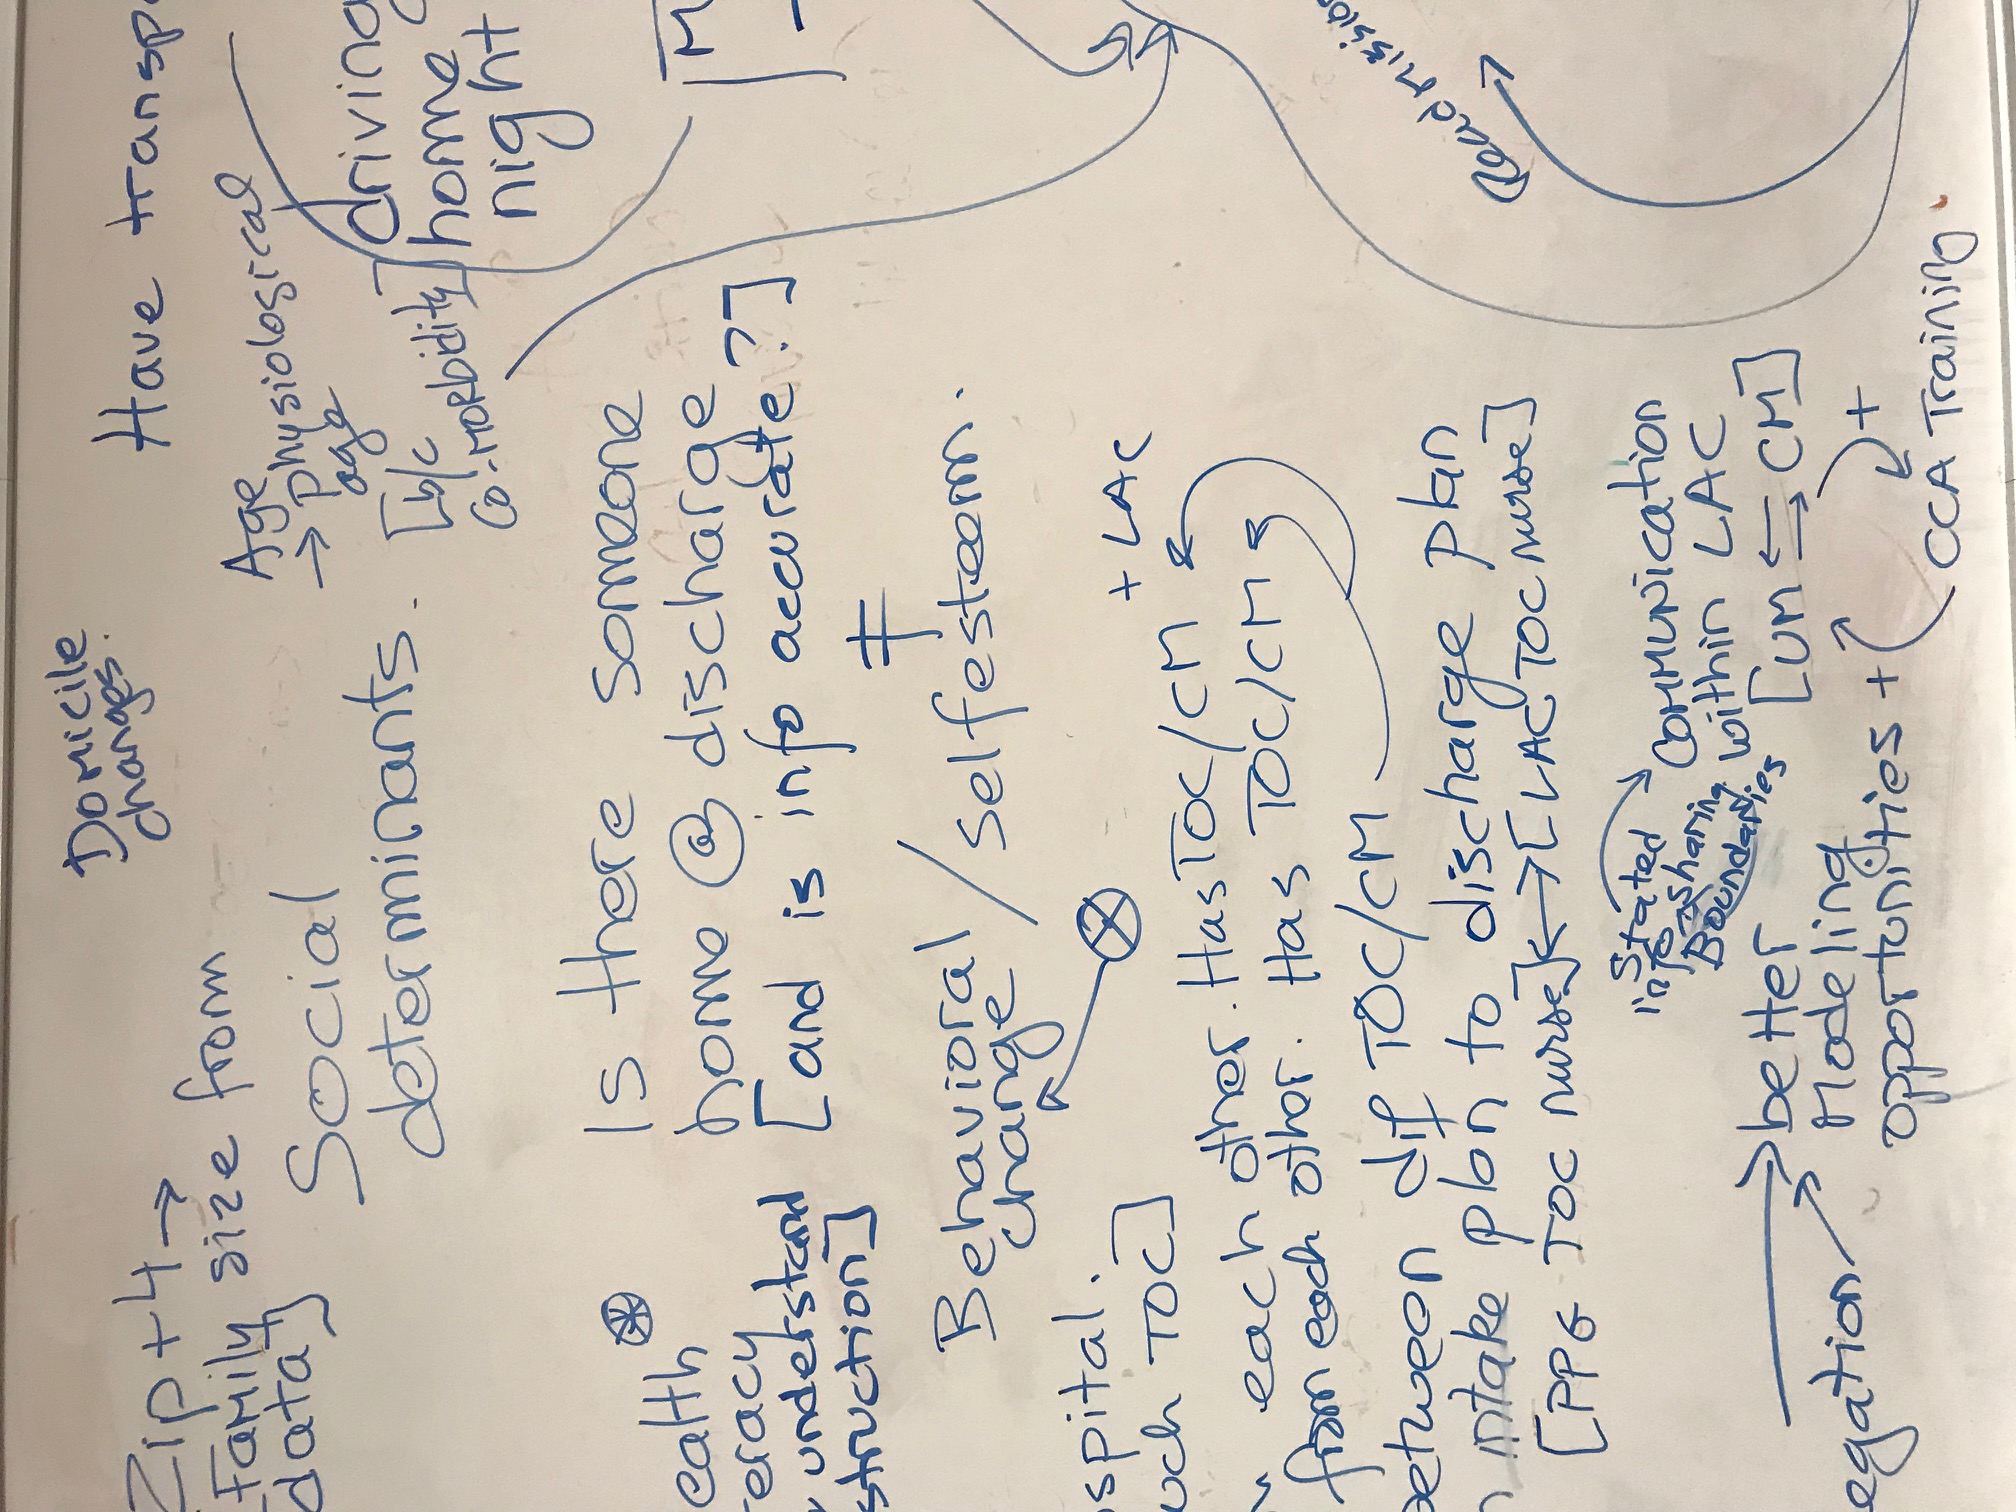 Domicile
changes.
Zip+4→
[Family size from
data]
Social
determinants.
Have transp
Age
→ physiological
age
[b/c
Co-morbidity]
driving
home
night
ealth
eracy
understand
struction]
Is there someone
home @ discharge
[and is info accurate?]
M
Behavioral / selfesteem.
change
spital.
uch TOC]
+ LAC
each other. Has TOC/CM
from each other. Has TOC/CM
between dif TOC/CM
intake plan to discharge plan
[PPG TOC nurse]↔[LAC TOC nurse]
Readmission
Stated
info-sharing
Boundaries
Communication
within LAC
[UM ⇆ CM]
+
CCA Training.
egation
better
Modeling
opportunities +